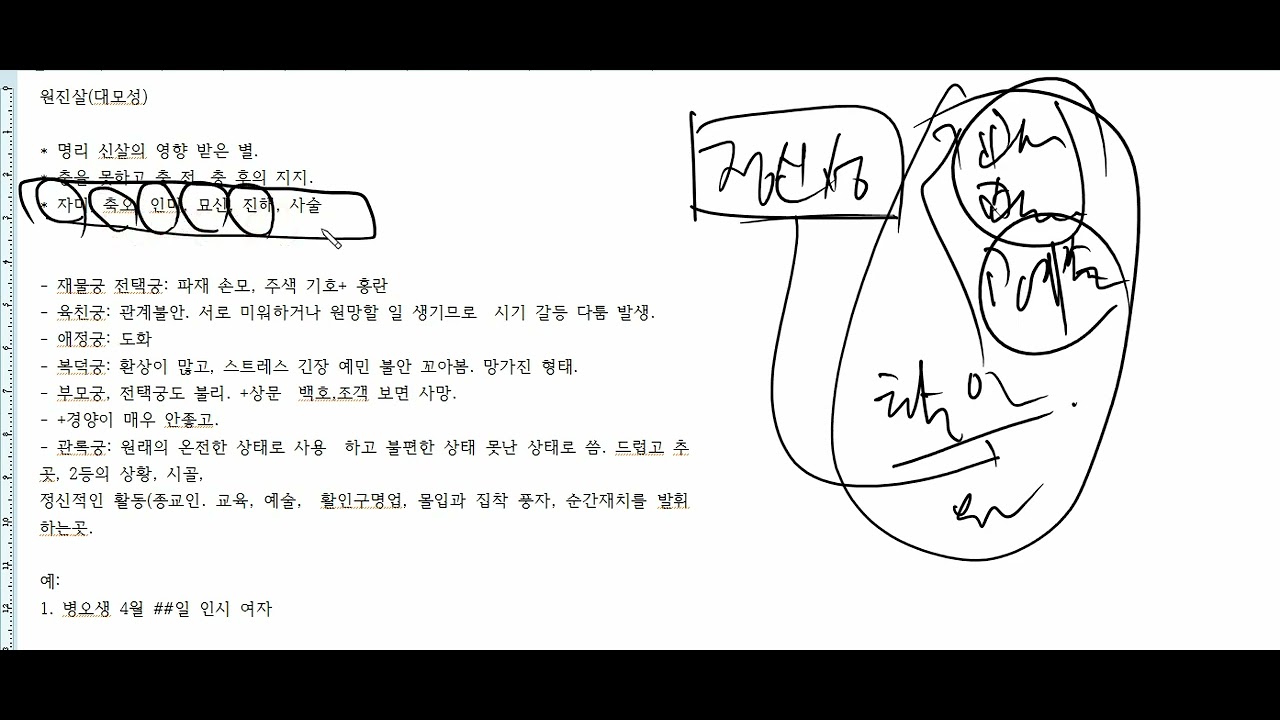 원진살(대모성)
* 명리 신살의 영향 받은 별.
* 충을 못하고 충 전 충 후의 지지.
* 자미 축오 인미, 묘신, 진해, 사술
- 재물궁 전택궁: 파재 손모, 주색 기호+ 홍란
- 육친궁: 관계불안. 서로 미워하거나 원망할 일 생기므로 시기 갈등 다툼 발생.
- 애정궁: 도화
- 복덕궁: 환상이 많고, 스트레스 긴장 예민 불안 꼬아봄. 망가진 형태.
- 부모궁, 전택궁도 불리. +상문 백호,조객 보면 사망.
- +경양이 매우 안좋고.
- 관록궁: 원래의 온전한 상태로 사용 하고 불편한 상태 못난 상태로 씀. 드럽고 추
곳, 2등의 상황, 시골,
정신적인 활동(종교인. 교육, 예술, 활인구명업, 몰입과 집착 풍자, 순간재치를 발휘
하는곳.
예:
1. 병오생 4월 ##일 인시 여자
정신성